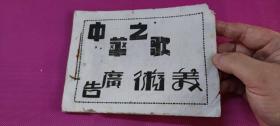 中華之歌
美術廣告